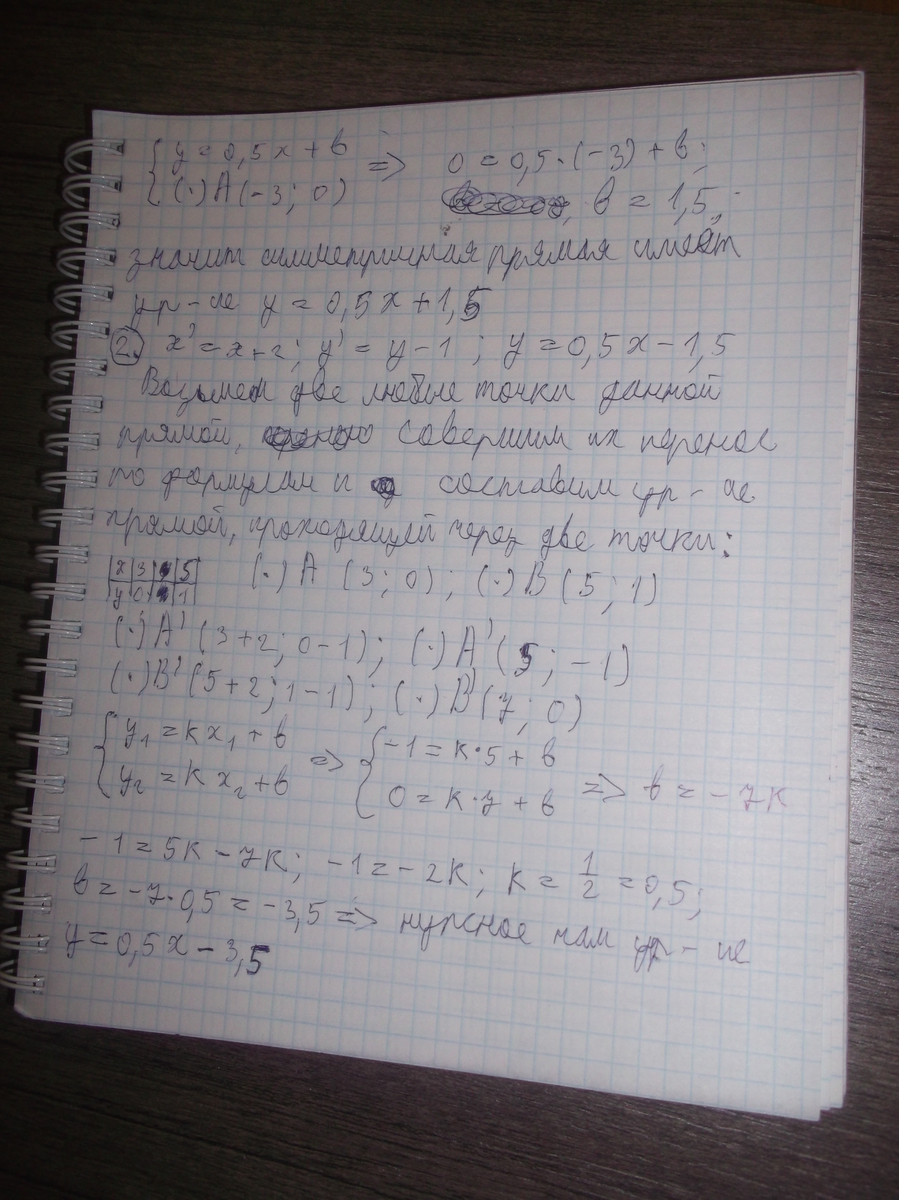 { y = 0,5x + в => 0 = 0,5·(-3) + в;
(·) A (-3; 0) в = 1,5;
значит симметричная прямая имеет
ур-ие y = 0,5x + 1,5
2. x' = x+2; y' = y-1; y = 0,5x - 1,5
Возьмем две любые точки данной
прямой, совершим их перенос
по формулам и составим ур-ие
прямой, проходящей через две точки:
x 3 5 (·) A (3; 0); (·) B (5; 1)
y 0 1
(·) A' (3+2; 0-1); (·) A' (5; -1)
(·) B' (5+2; 1-1); (·) B' (7; 0)
{ y₁ = kx₁ + в => { -1 = k·5 + в
y₂ = kx₂ + в 0 = k·7 + в => в = -7k
-1 = 5k - 7k; -1 = -2k; k = 1/2 = 0,5;
в = -7·0,5 = -3,5 => нужное нам ур-ие
y = 0,5x - 3,5